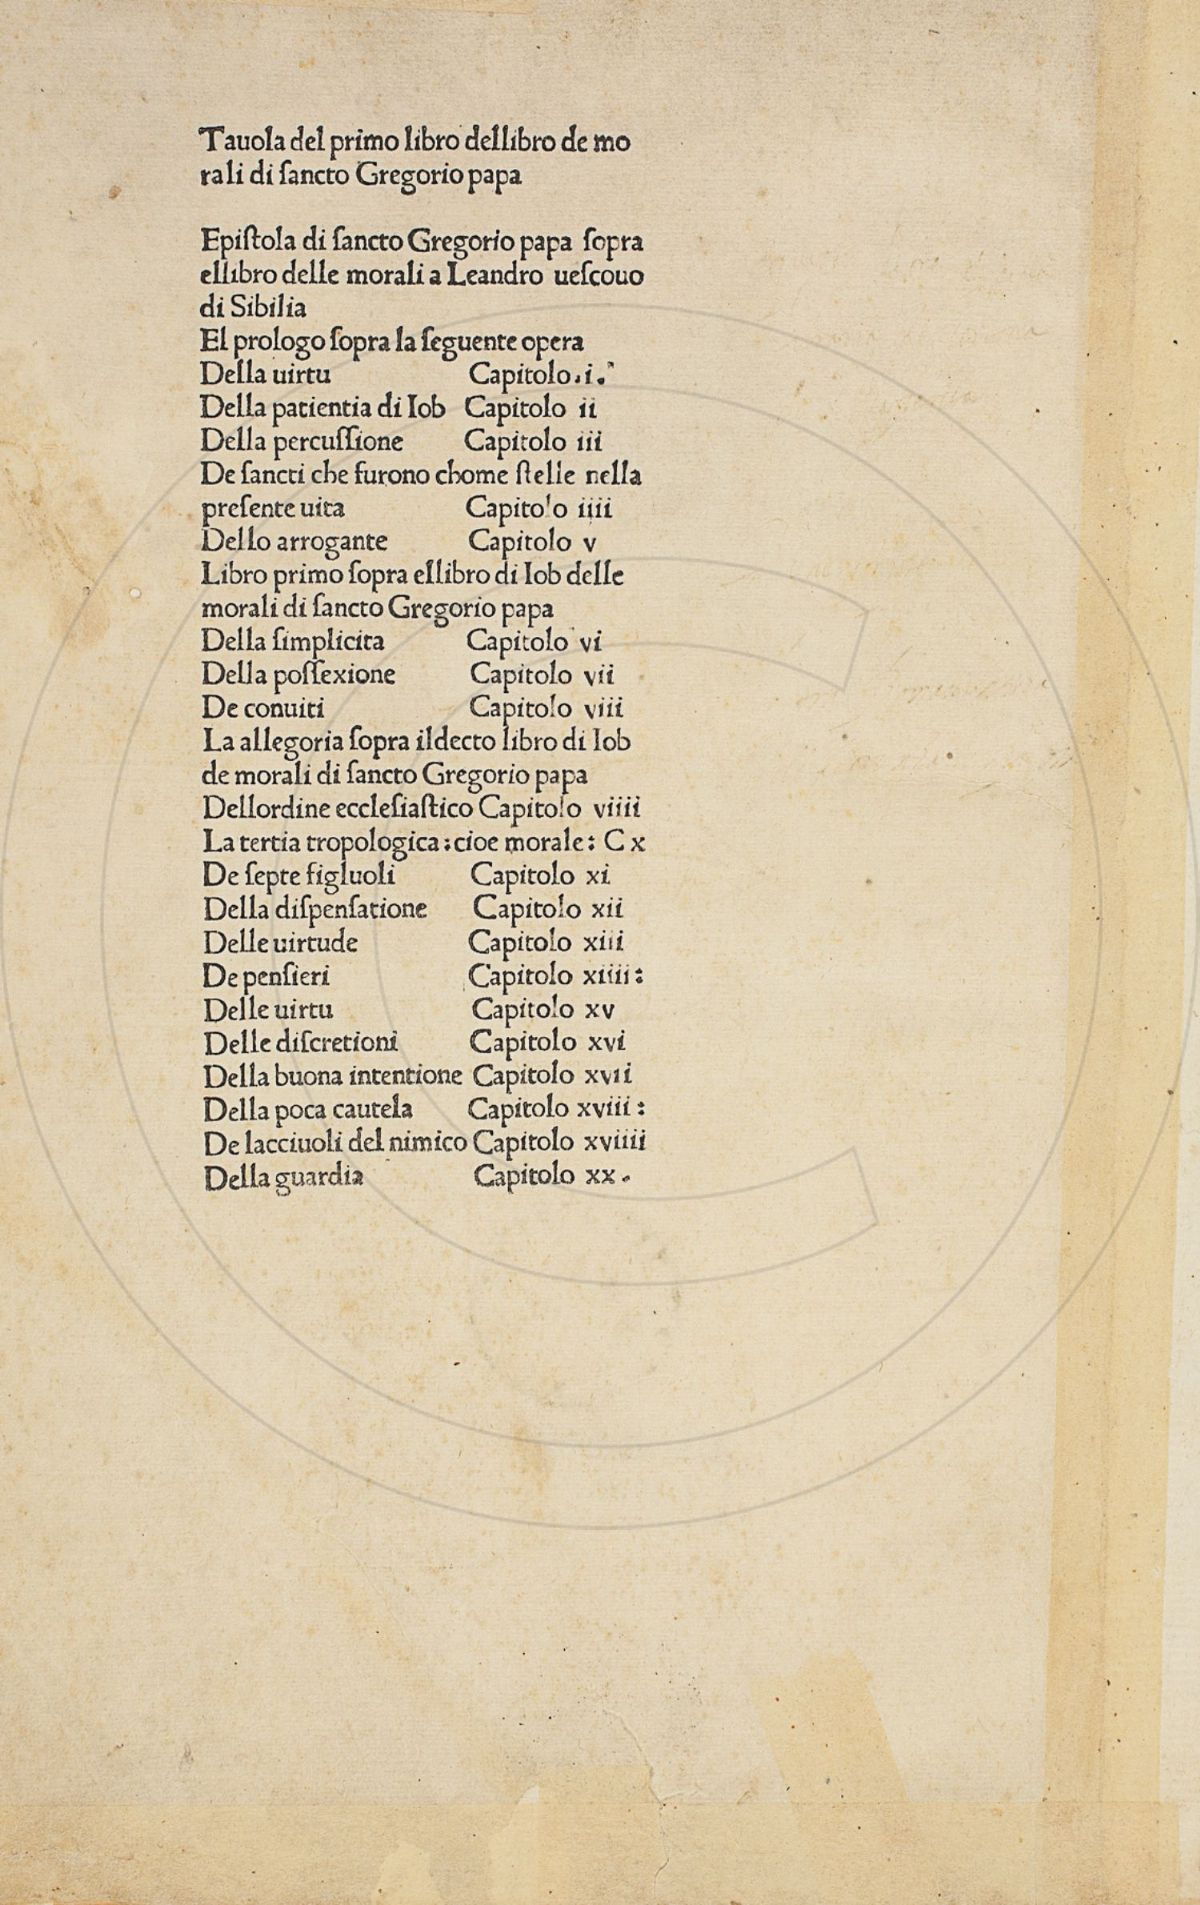 Tauola del primo libro dellibro de mo
rali di ſancto Gregorio papa
Epiſtola di ſancto Gregorio papa ſopra
ellibro delle morali a Leandro ueſcouo
di Sibilia
El prologo ſopra la ſeguente opera
Della uirtu Capitolo.i.
Della patientia di Iob Capitolo ii
Della percuſſione Capitolo iii
De ſancti che furono chome ſtelle nella
preſente uita Capitolo iiii
Dello arrogante Capitolo v
Libro primo ſopra ellibro di Iob delle
morali di ſancto Gregorio papa
Della ſimplicita Capitolo vi
Della poſſexione Capitolo vii
De conuiti Capitolo viii
La allegoria ſopra ildecto libro di Iob
de morali di ſancto Gregorio papa
Dellordine eccleſiaſtico Capitolo viiii
La tertia tropologica:cioe morale: C x
De ſepte figluoli Capitolo xi
Della diſpenſatione Capitolo xii
Delle uirtude Capitolo xiii
De penſieri Capitolo xiiii:
Delle uirtu Capitolo xv
Delle diſcretioni Capitolo xvi
Della buona intentione Capitolo xvii
Della poca cautela Capitolo xviii:
De lacciuoli del nimico Capitolo xviiii
Della guardia Capitolo xx.